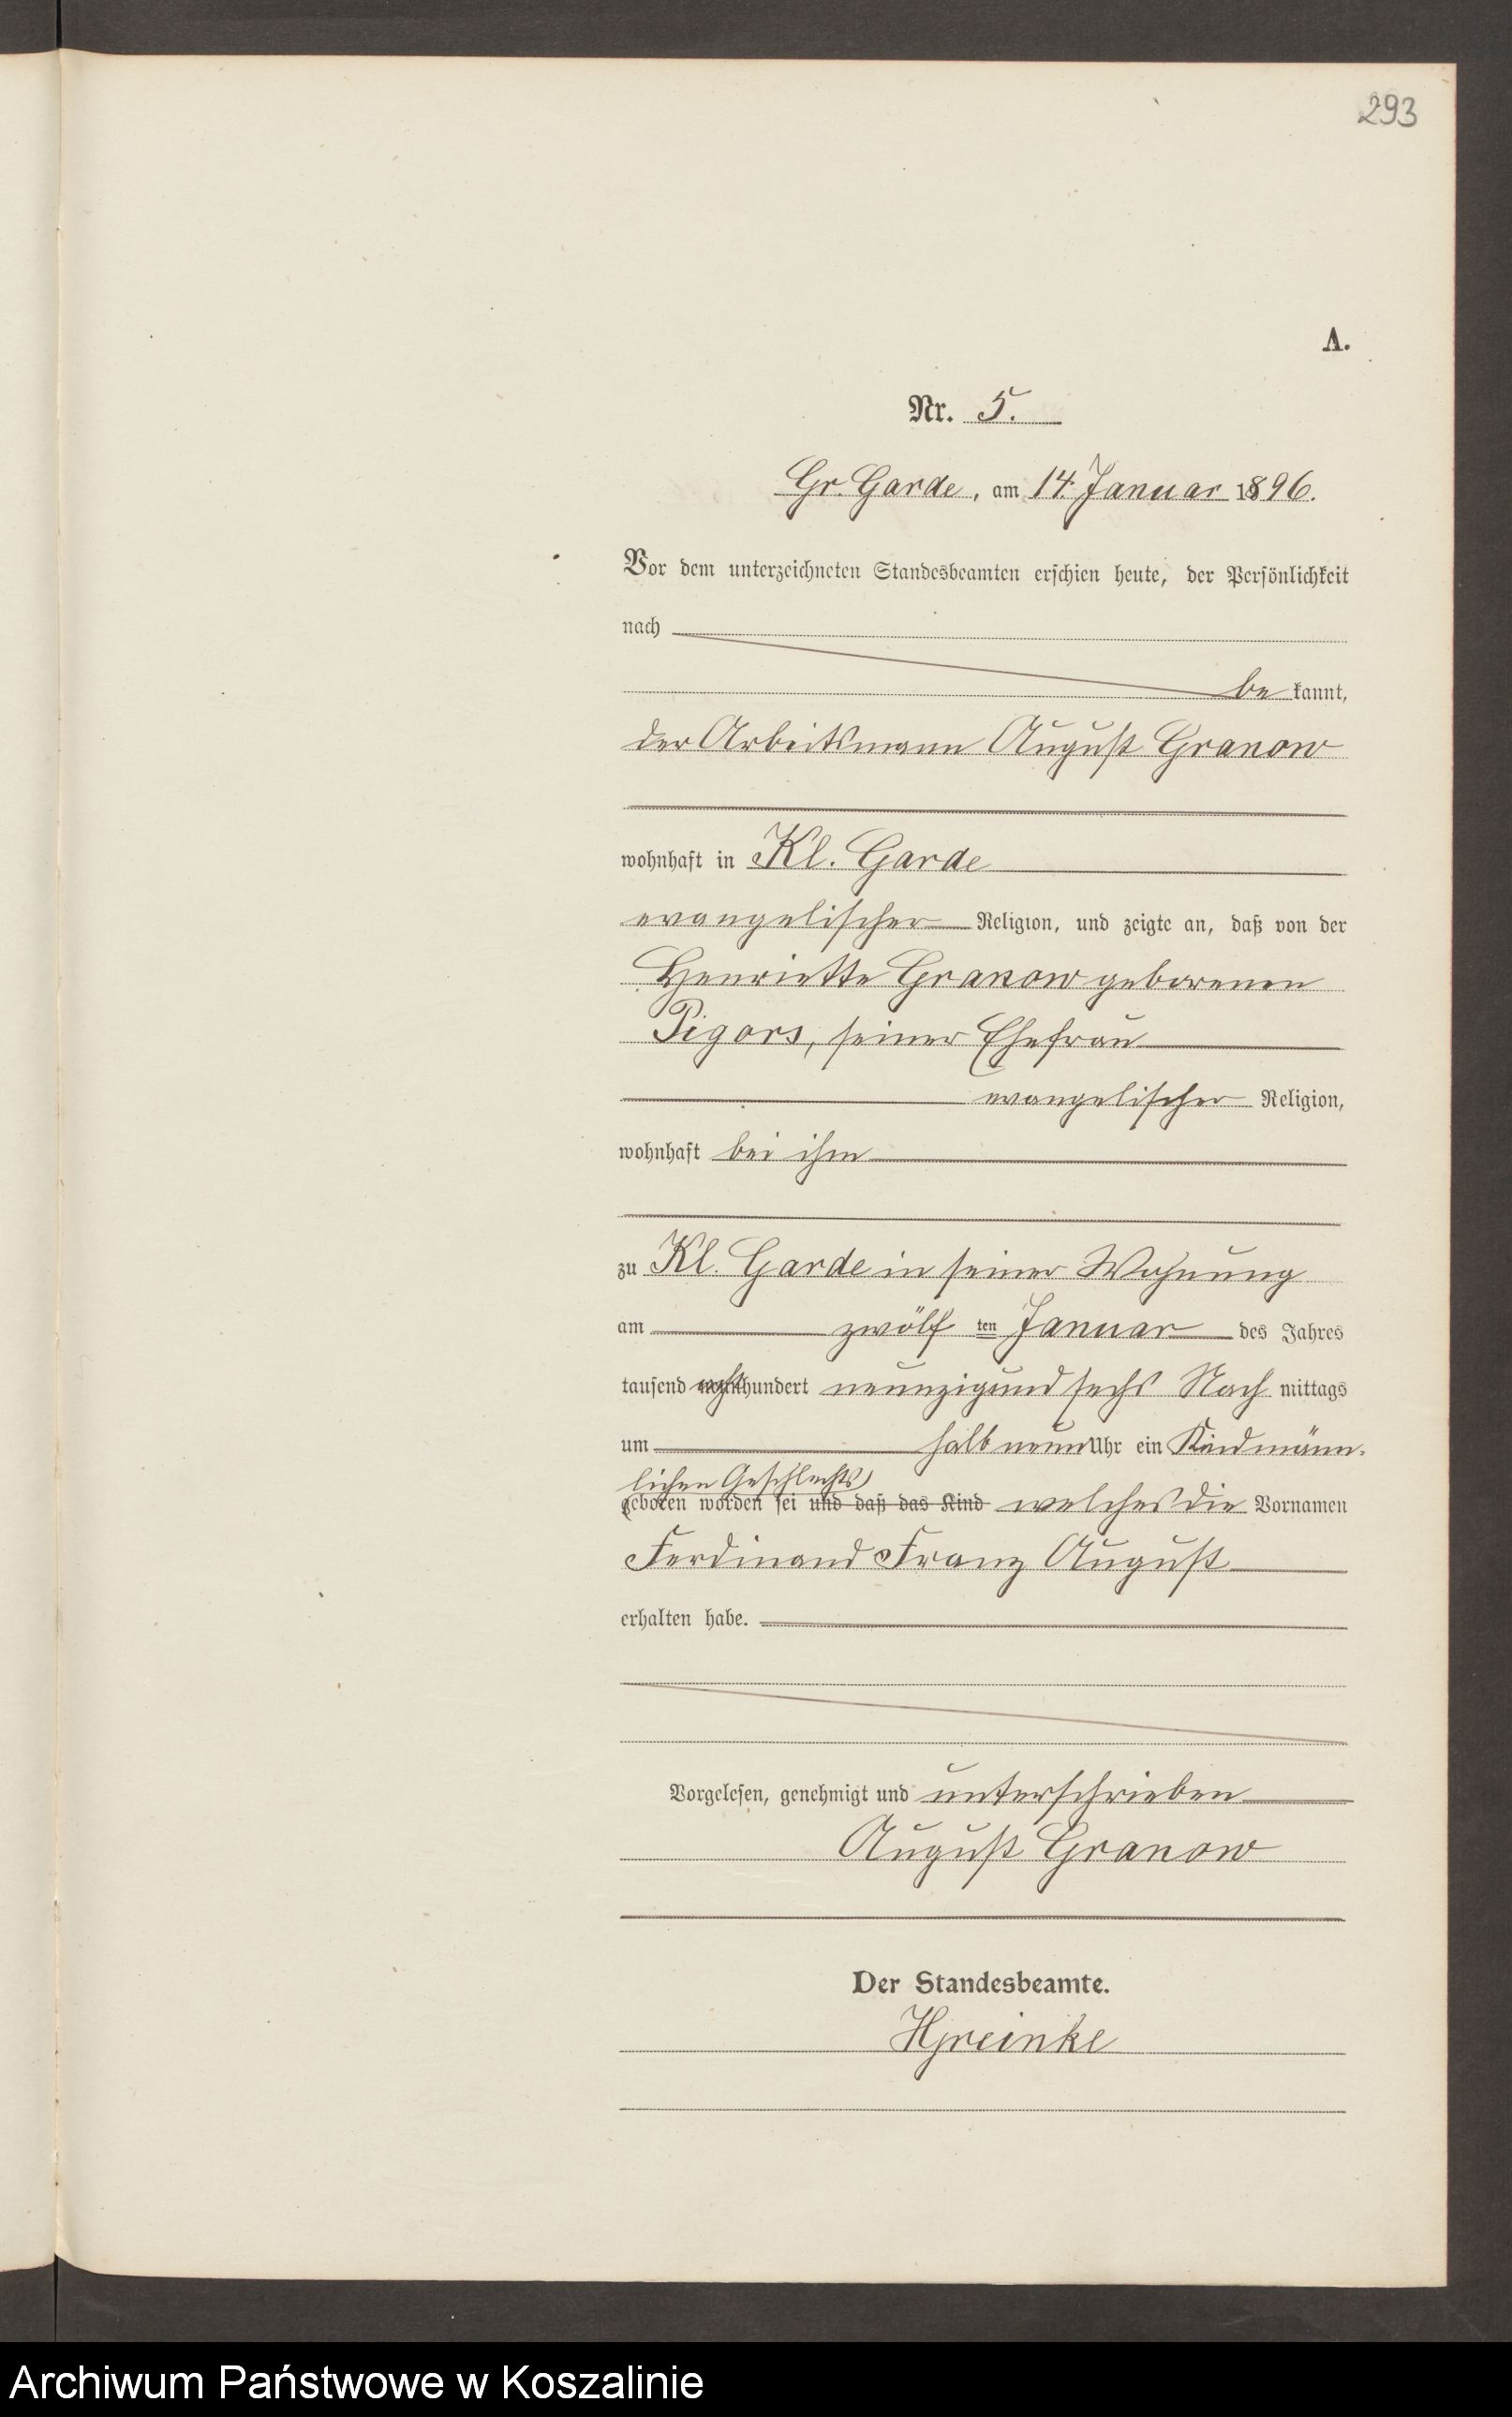 293
A.
Nr. 5.
Gr. Garde, am 14. Januar 1896.
Vor dem unterzeichneten Standesbeamten erschien heute, der Persönlichkeit
nach
be kannt,
der Arbeitsmann August Granow
wohnhaft in Kl. Garde
evangelischer Religion, und zeigte an, daß von der
Henriette Granow geborenen
Pigors, seiner Ehefrau
evangelischer Religion,
wohnhaft bei ihm
zu Kl. Garde in seiner Wohnung
am zwölf ten Januar des Jahres
tausend achthundert neunzig und sechs Nach mittags
um halb neun Uhr ein Kind männ-
lichen Geschlechts
geboren worden sei und daß das Kind welches die Vornamen
Ferdinand Franz August
erhalten habe.
Vorgelesen, genehmigt und unterschrieben
August Granow
Der Standesbeamte.